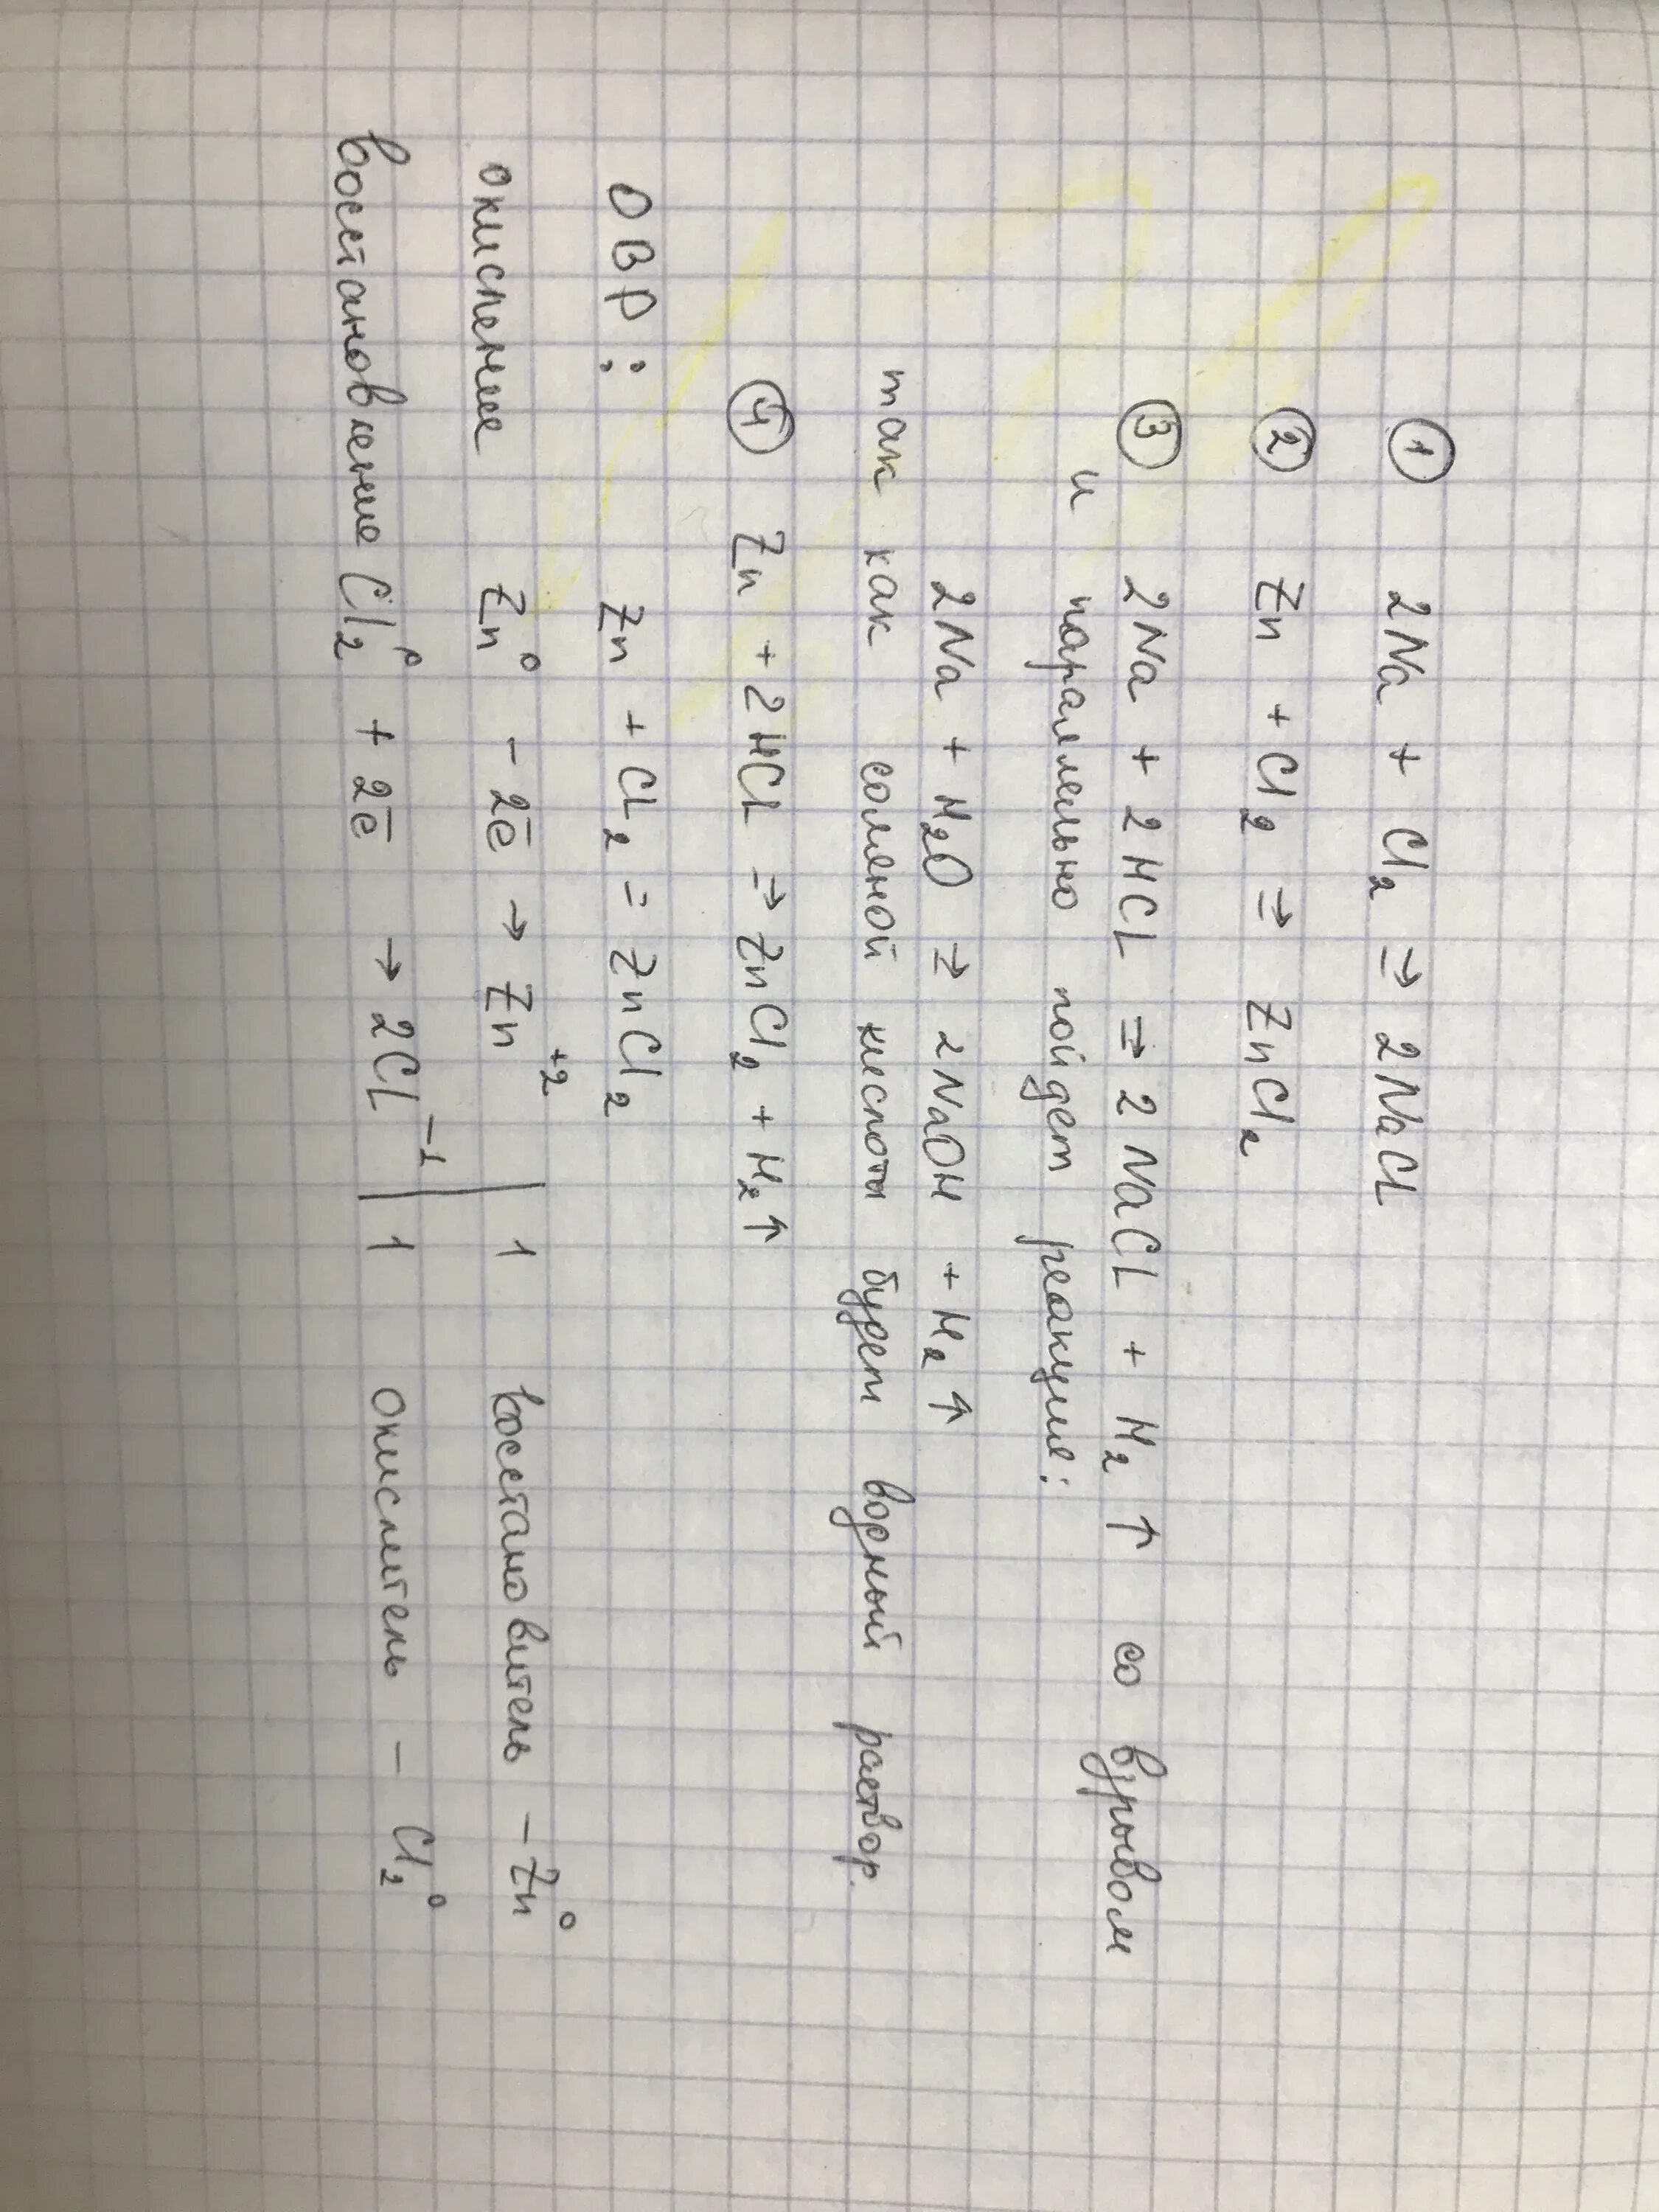 ① 2Na + Cl₂ ⇒ 2NaCl
② Zn + Cl₂ ⇒ ZnCl₂
③ 2Na + 2HCl ⇒ 2NaCl + H₂↑ со взрывом
и параллельно пойдет реакция:
2Na + H₂O ⇒ 2NaOH + H₂↑
так как соляной кислоты будет водный раствор.
④ Zn + 2HCl ⇒ ZnCl₂ + H₂↑
ОВР: Zn + Cl₂ = ZnCl₂
окисление Zn⁰ - 2ē → Zn⁺² | 1 восстановитель - Zn⁰
восстановление Cl₂⁰ + 2ē → 2Cl⁻¹ | 1 окислитель - Cl₂⁰